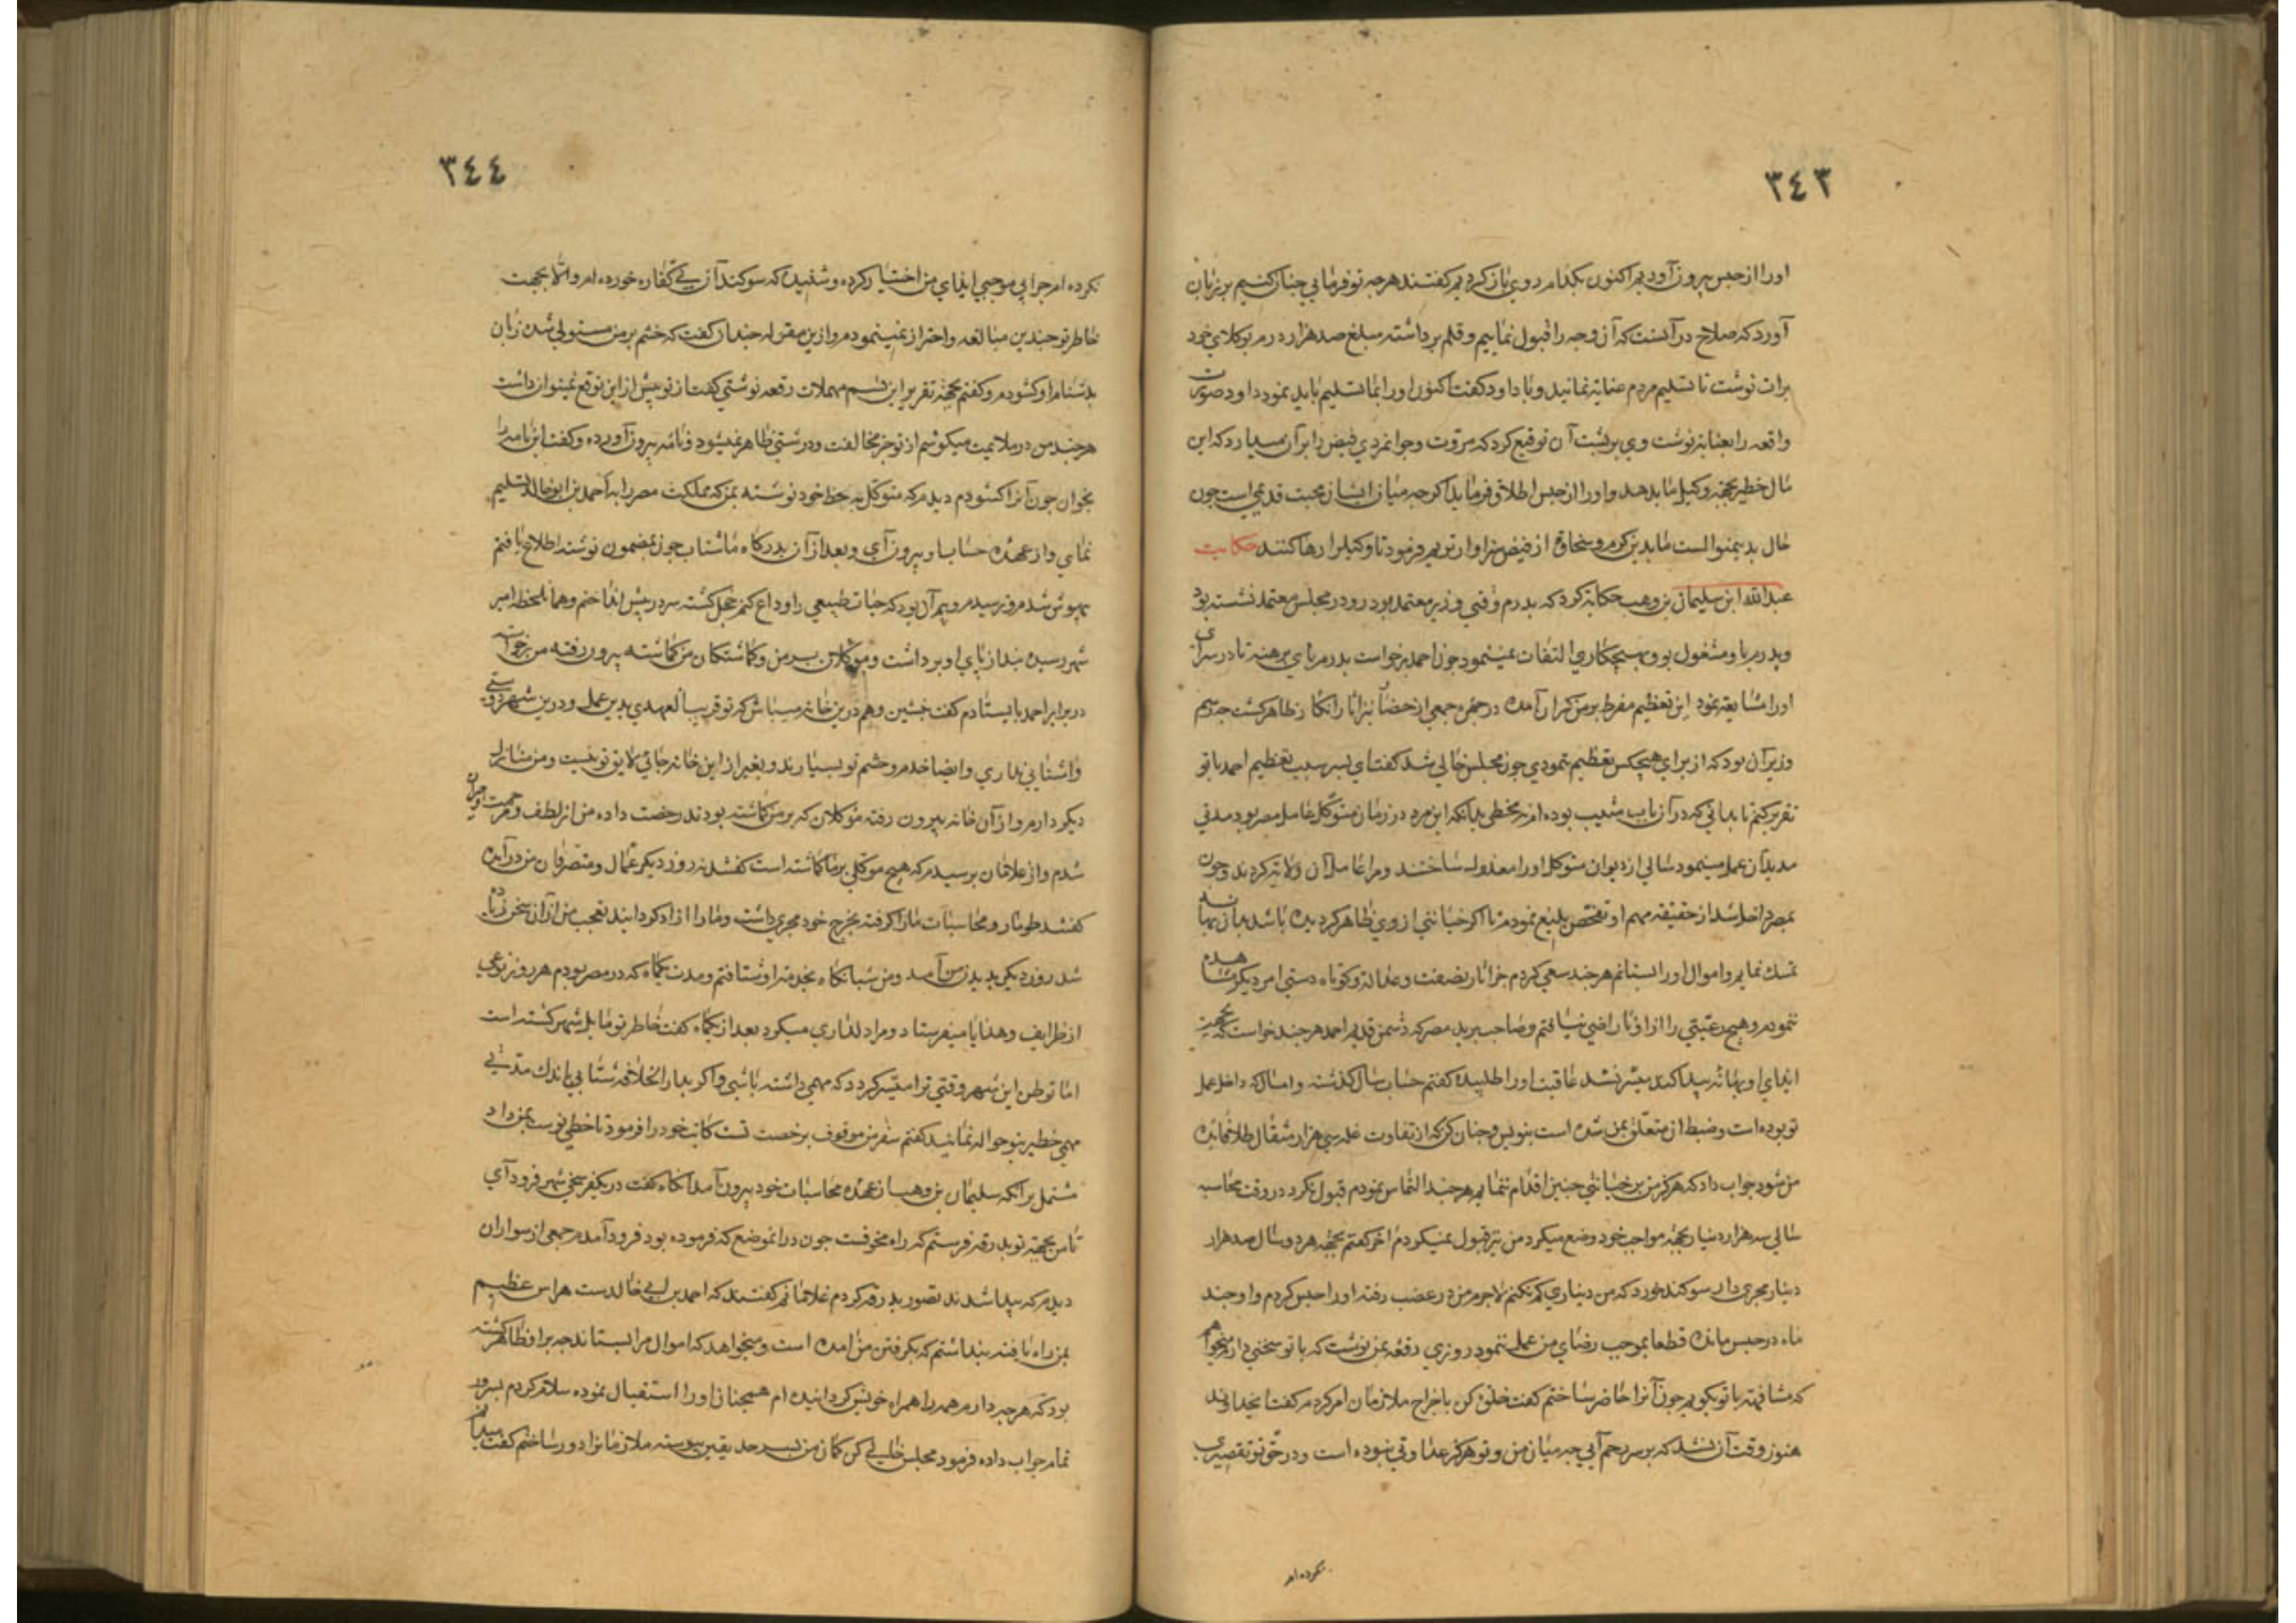 ٣٤٣
اورا از حبس بیرون آوردیم اکنون بکدام روی باز کردیم کفتند هرچه تو فرمایی چنان کنیم بر زبان
آورد که صلاح در آنست که آن وجه را قبول نماییم و قلم برداشته مبلغ صد هزار درم بوکلای خود
برات نوشت تا تسلیم مردم عنابه نمانید و با داود کفت اکنون اورا بما تسلیم باید نمود داود صورت
واقعه را بعنابه نوشت وی بر پشت آن توقیع کرد که مروت و جوانمردی فیض را بر آن میدارد که این
مال خطیر بجهة وکیل ما بدهد واورا از حبس اطلاق فرماید اکرچه میان ایشان محبت قدیمی است چون
حال بدینمنوالست ما بدین کرم و سخاوة از فیض سزاوارتریم فرمود تا وکیل را رها کنند حکایت
عبدالله ابن سلیمان بن وهب حکایة کرد که پدرم وقتی وزیر معتمد بود روزی در مجلس معتمد نشسته بود
و پدرم با او مشغول بود و بهیچکاری التفات نمینمود چون احمد برخواست پدرم پای برهنه تا در سرای
اورا مشایعة نمود این تعظیم مفرط بر من کران آمد در چهره جمعی از حضار نیز آثار انکار ظاهر کشت چه رسم
وزیر آن بود که از برای هیچکس تعظیم ننمودی چون مجلس خالی شد کفت ای پسر سبب تعظیم احمد با تو
تقریر کنم تا بدانی که در آن باب مصیب بوده ام نه مخطی بدانکه این مرد در زمان متوکل عامل مصر بود مدتی
مدید آن عمل مینمود سالی از دیوان متوکل اورا معذول ساختند و مرا عامل آن ولایة کردند و چون
بمصر داخل شد از حقیقة مهم او تفحص بلیغ نمودم تا اکر خیانتی از وی ظاهر کردیده باشد بدان بهانه
تمسک نمایم و اموال اورا بستانم هرچند سعی کردم جز آثار نصفت و عدالة و کوتاه دستی امر دیکر مشاهده
ننمودم و هیچ رعیتی را از او ناراضی نیافتم و صاحب برید مصر که دشمن قدیم احمد هرچند خواست که بجهت
ایذای او بهانه پیدا کند میسر نشد عاقبت اورا طلبیده کفتم حساب سال کذشته و امسال که داخل عمل
تو بوده است و ضبط آن متعلق بمن شده است بنویس و چنان کن که از تفاوت غله سی هزار مثقال طلا بماند
من شود جواب داد که هرکز من بر خیانتی چنین اقدام ننمایم هرچند التماس نمودم قبول نکرد در وقت محاسبه
سالی سه هزار دینار بجهة مواجب خود وضع میکرد من نیز قبول نمیکردم آخر کفتم بجهة هر دو سال صد هزار
دینار مجری دار سوکند خورد که من دیناری کم نکنم لاجرم من در غضب رفته اورا حبس کردم واو چند
ماه در حبس مانده قطعا بموجب رضای من عمل ننمود روزی رقعه بمن نوشت که با تو سخنی دارم میخواهم
که مشافهة با تو بکویم چون آنرا حاضر ساختم کفت خلوة کن باخراج ملازمان امر کردم کفت ایخداوند
هنوز وقت آن نشد که بر سر رحم آیی چه میان من و تو هرکز عداوتی نبوده است و در حق تو تقصیری
نکرده ام
٣٤٤
نکرده ام چرا بی موجبی ایذای من اختیار کرده و شنیده که سوکند آن بی کفاره خورده ام والا بجهت
خاطر تو چندین مبالغه و احتراز نمینمودم و ازین مقوله چندان کفت که خشم بر من مستولی شده زبان
بدشنام او کشودم و کفتم بجهة تقریر این قسم مهملات رقعه نوشتی کفت از تو بیش از این توقع نمیتوان داشت
هرچند من در ملایمت میکوشم از تو جز مخالفت و درشتی ظاهر نمیشود و نامه بیرون آورده و کفت این نامه را
بخوان چون آنرا کشودم دیدم که متوکل به خط خود نوشته بمن که مملکت مصر را به احمد بن ابو خالد تسلیم
نمای و از عهده حساب او بیرون آی و بعد از آن بدرکاه ما شتاب چون بمضمون نوشته اطلاع یافتم
بیهوش شدم و نرسیدم و بیم آن بود که حیات طبیعی را وداع کنم خجل کشته سر در پیش انداختم و همان لحظه امیر
شهر رسیده بند از پای او برداشت و موکلان بر من و کماشتکان من کماشته بیرون رفته من برخواسته
در برابر احمد بایستادم کفت بنشین و هم درین خانه میباش که تو قریب العهدی بدین عمل و درین شهر دوستی
و آشنایی نداری و ایضا خدم و حشم تو بسیارند و بغیر از این خانه جائی لایق تو نیست و من منازل
دیکر دارم و از آن خانه بیرون رفته موکلان که بر من کماشته بودند رخصت داده من از لطف و مرحمت او حیران
شدم و از غلامان پرسیدم که هیچ موکلی بر ما کماشته است کفتند نه روز دیکر عمال و متصرفان من در آمده
کفتند طومار و محاسبات مارا کرفته بخرج خود مجری داشت و مارا آزاد کردانید تعجب من از آن سخن زیاده
شد روز دیکر بدیدن من آمد و من شبانکاه بخدمة او شتافتم و مدت یکماه که در مصر بودم هر روز نوعی
از ظرایف و هدایا میفرستاد و مرا دلداری میکرد بعد از یکماه کفت خاطر تو مایل شهر کشته است
اما توطن این شهر وقتی ترا میسر کردد که مهمی داشته باشی و اکر بدار الخلافه شتابی باندک مدتی
مهمی خطیر بتو حواله نمایند کفتم سفر من موقوف برخصت تست کاتب خود را فرمود تا خطی نوشته بمن داد
مشتمل بر آنکه سلیمان بن وهب از عهده محاسبات خود بیرون آمد آنکاه کفت در یکفرسخی شهر فرود آی
تا من بجهة تو بدرقه فرستم که راه مخوفست چون در آنموضع که فرموده بود فرود آمدم جمعی از سواران
دیدم که پیدا شدند تصور بدرقه کردم غلامانم کفتند که احمد بن ابی خالدست هراس عظیم
بمن راه یافته پنداشتم که بکرفتن من آمده است و میخواهد که اموال مرا بستاند چه بر او ظاهر کشته
بود که هرچه دارم همه را همراه خویش کردانیده ام همچنان اورا استقبال نموده سلام کردم بسرور
تمام جواب داده فرمود مجلس خالی کن کمان من بسرحد یقین پیوسته ملازمانرا دور ساختم کفت میدانم